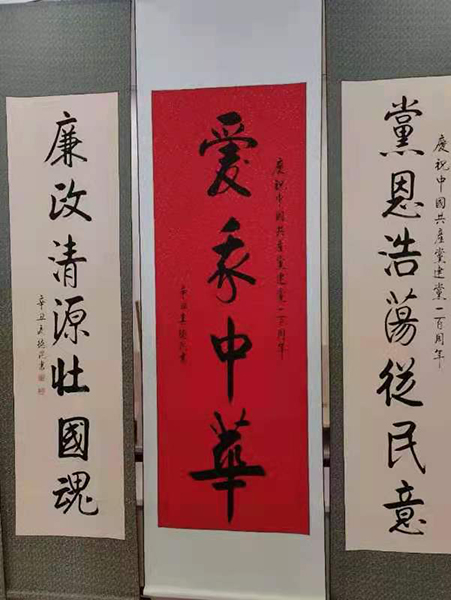 慶祝中國共產黨建黨一百周年
黨恩浩蕩從民意
慶祝中國共產黨建黨一百周年
愛我中華
辛丑 書
廉政清源壯國魂
辛丑 書